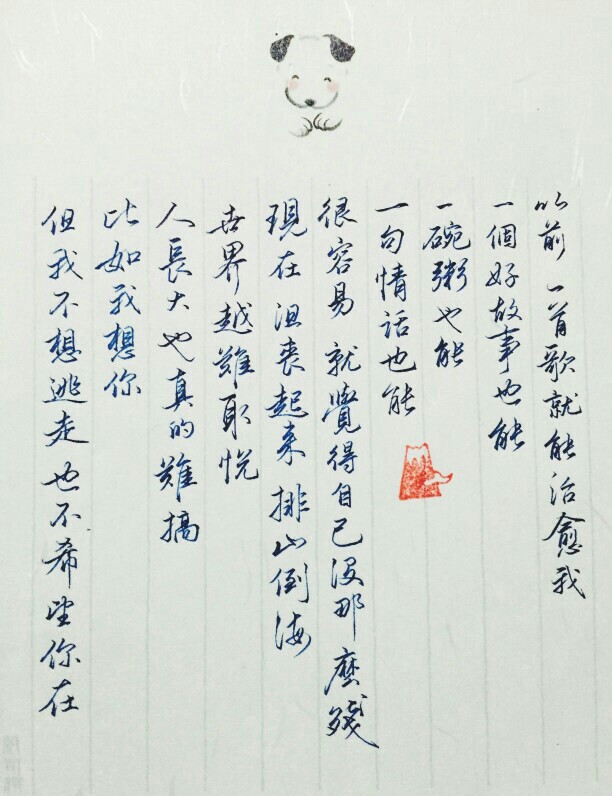 以前 一首歌就能治愈我
一個好故事也能
一碗粥也能
一句情話也能
很容易 就覺得自己没那麼殘
現在 沮喪起来 排山倒海
世界越難取悦
人長大也真的難搞
比如我想你
但我不想逃走 也不希望你在